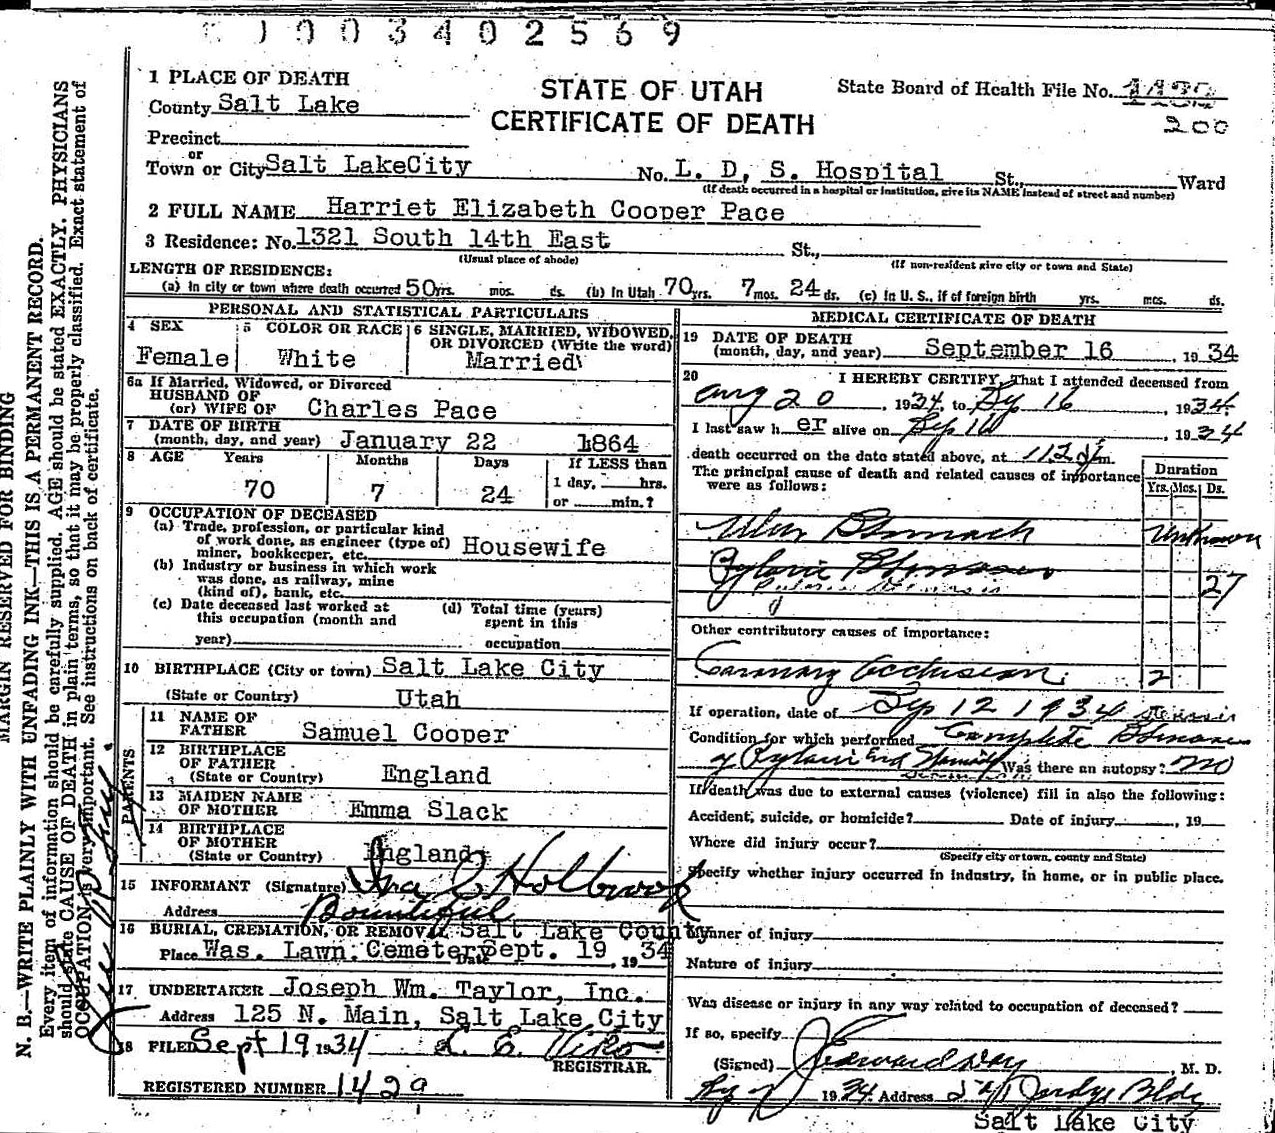 0003402569
1 PLACE OF DEATH
STATE OF UTAH
CERTIFICATE OF DEATH
State Board of Health File No.
200
County Salt Lake
Precinct
or
Town or City Salt LakeCity No. L. D, S. Hospital St., Ward
(If death occurred in a hospital or institution, give its NAME instead of street and number)
2 FULL NAME Harriet Elizabeth Cooper Pace
3 Residence: No. 1321 South 14th East St.,
(Usual place of abode) (If non-resident give city or town and State)
LENGTH OF RESIDENCE:
(a) In city or town where death occurred 50 yrs. mos. ds. (b) In Utah 70 yrs. 7 mos. 24 ds. (c) In U. S., if of foreign birth yrs. mos. ds.
PERSONAL AND STATISTICAL PARTICULARS
4 SEX 5 COLOR OR RACE 6 SINGLE, MARRIED, WIDOWED, OR DIVORCED (Write the word)
Female White Married
6a If Married, Widowed, or Divorced
HUSBAND OF
(or) WIFE OF Charles Pace
7 DATE OF BIRTH
(month, day, and year) January 22 1864
8 AGE Years Months Days If LESS than
1 day, hrs.
70 7 24 or min.?
9 OCCUPATION OF DECEASED
(a) Trade, profession, or particular kind
of work done, as engineer (type of)
miner, bookkeeper, etc. Housewife
(b) Industry or business in which work
was done, as railway, mine
(kind of), bank, etc.
(c) Date deceased last worked at
this occupation (month and
year)
(d) Total time (years)
spent in this
occupation
10 BIRTHPLACE (City or town) Salt Lake City
(State or Country) Utah
PARENTS
11 NAME OF
FATHER Samuel Cooper
12 BIRTHPLACE
OF FATHER
(State or Country) England
13 MAIDEN NAME
OF MOTHER Emma Slack
14 BIRTHPLACE
OF MOTHER
(State or Country) England
15 INFORMANT (Signature) Ira C Holbrook
Address Bountiful
16 BURIAL, CREMATION, OR REMOVAL Salt Lake County
Place Was. Lawn Cemetery Date Sept. 19, 1934
17 UNDERTAKER Joseph Wm. Taylor, Inc.
Address 125 N. Main, Salt Lake City
18 FILED Sept 19 1934
REGISTRAR.
REGISTERED NUMBER 1429
MEDICAL CERTIFICATE OF DEATH
19 DATE OF DEATH
(month, day, and year) September 16, 1934
20 I HEREBY CERTIFY, That I attended deceased from
Aug 20, 1934, to Sep 16, 1934.
I last saw her alive on Sep 16, 1934
death occurred on the date stated above, at m.
The principal cause of death and related causes of importance
were as follows:
Duration
Yrs. Mos. Ds.
Ulcer Stomach Unknown
Pyloric Stenosis 27
Other contributory causes of importance:
Coronary Occlusion 2
If operation, date of Sep 12 1934
Condition for which performed Complete
Pyloric End Stomach Was there an autopsy? no
If death was due to external causes (violence) fill in also the following:
Accident, suicide, or homicide? Date of injury, 19
Where did injury occur?
(Specify city or town, county and State)
Specify whether injury occurred in industry, in home, or in public place.
Manner of injury
Nature of injury
Was disease or injury in any way related to occupation of deceased?
If so, specify
(Signed) M. D.
1934 Address Bldg
Salt Lake City
MARGIN RESERVED FOR BINDING
N. B.—WRITE PLAINLY WITH UNFADING INK—THIS IS A PERMANENT RECORD.
Every item of information should be carefully supplied. AGE should be stated EXACTLY. PHYSICIANS
should state CAUSE OF DEATH in plain terms, so that it may be properly classified. Exact statement of
OCCUPATION is very important. See instructions on back of certificate.